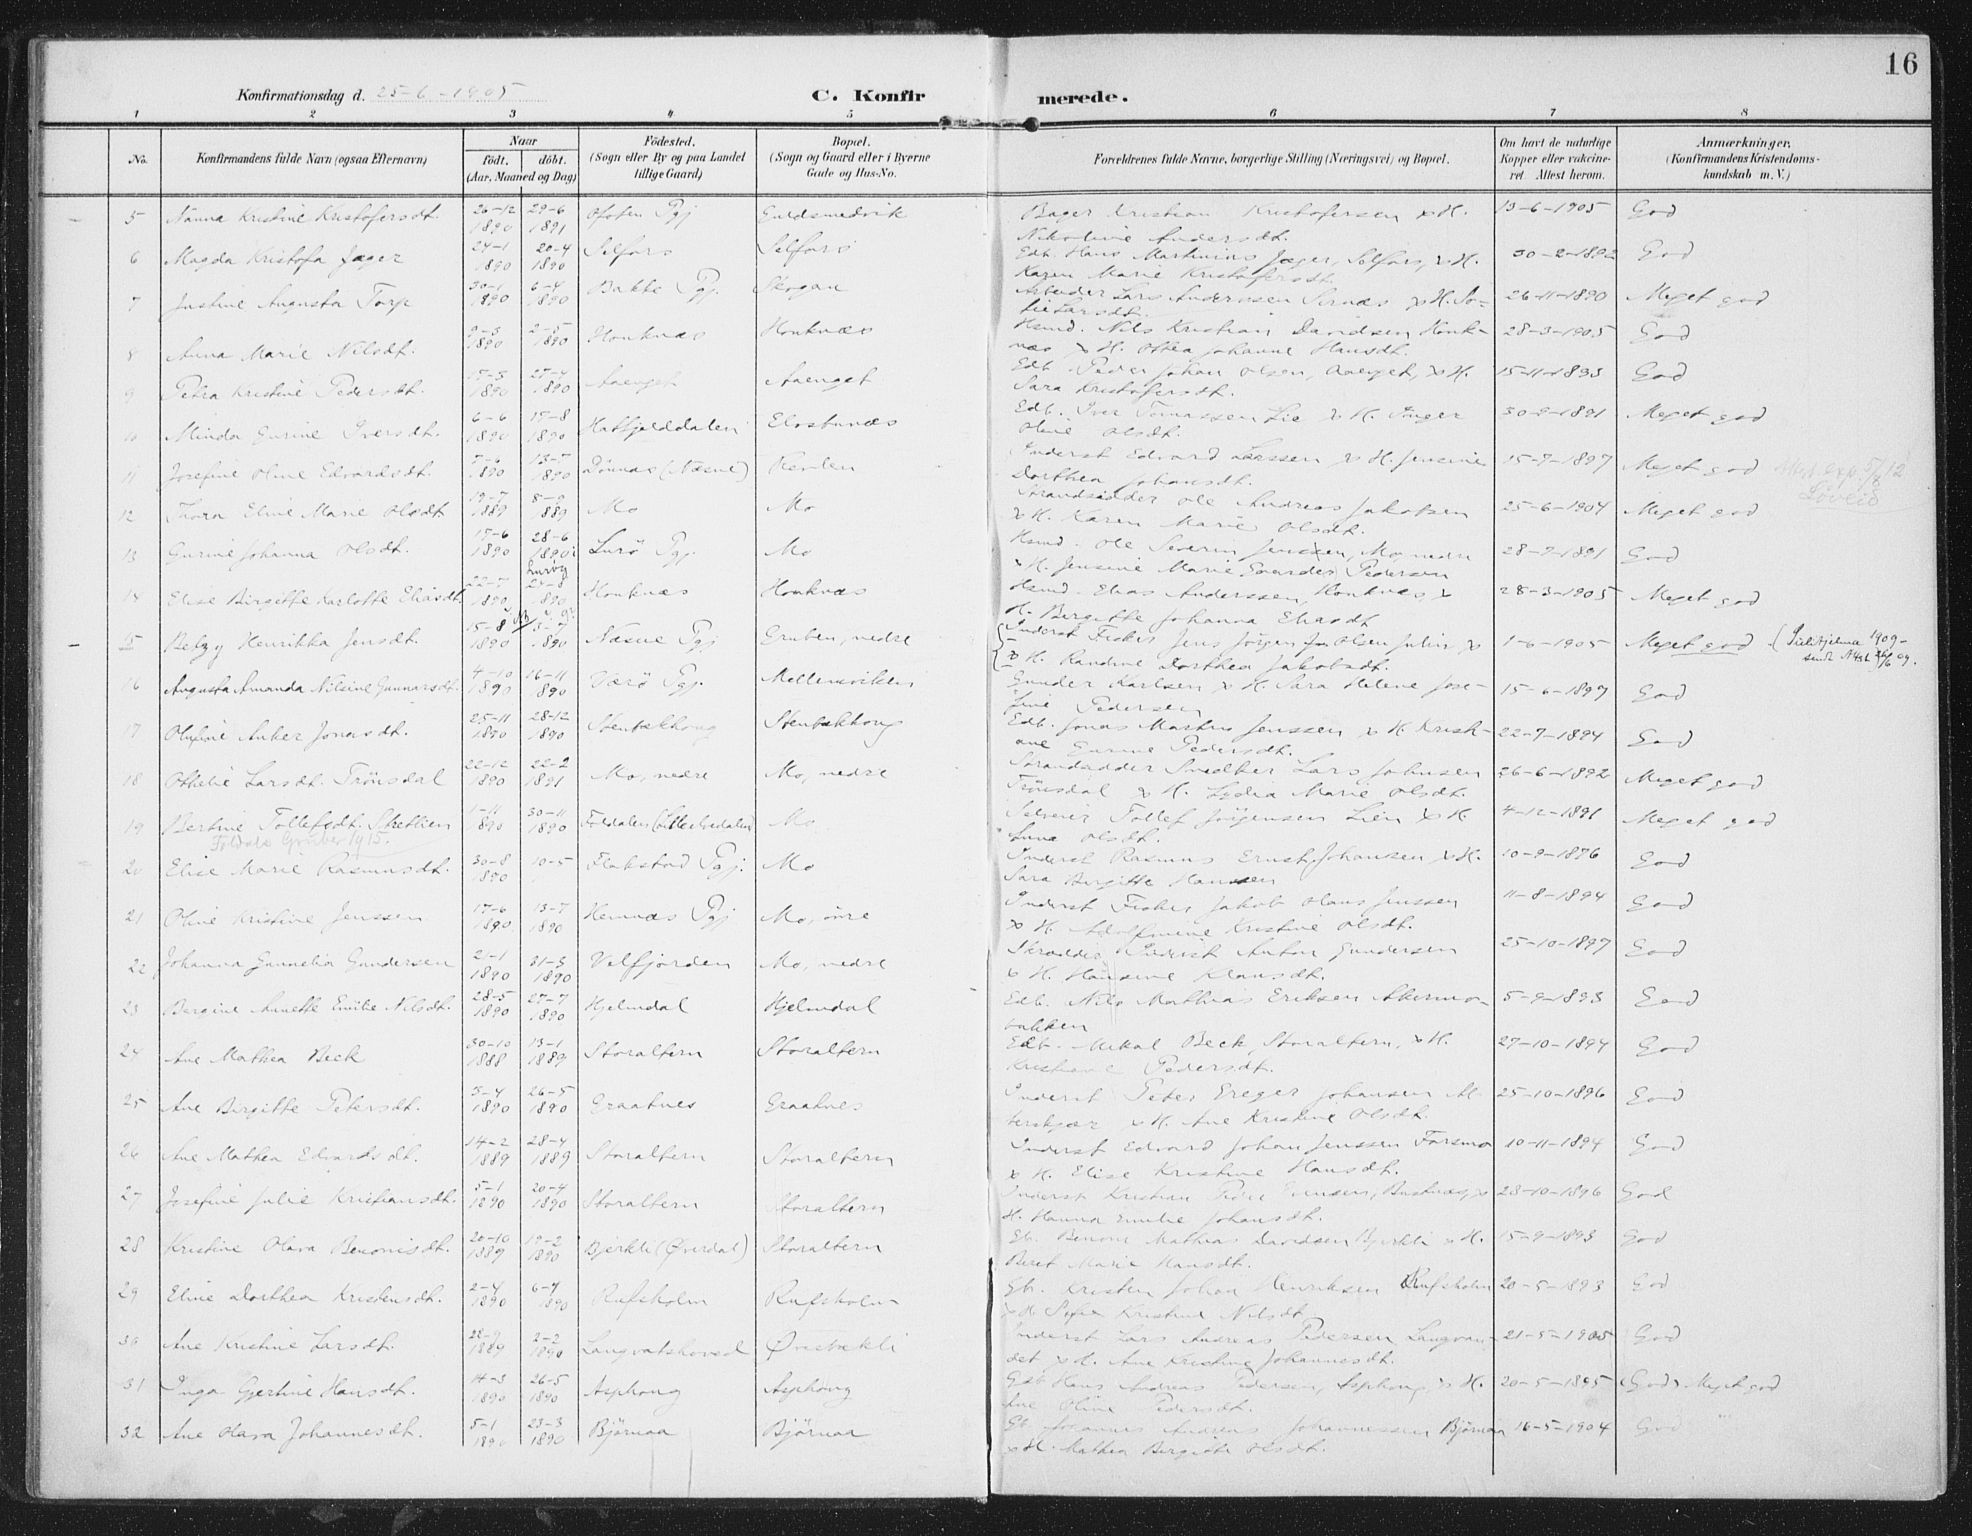 16
Konfirmationsdag d. 25-6-1905 C. Konfirmerede.
1 2 3 4 5 6 7 8
No. Konfirmandens fulde Navn (ogsaa Efternavn) Naar født, døbt. (Aar, Maaned og Dag) Fødested. (Sogn eller By og paa Landet tillige Gaard) Bopæl. (Sogn og Gaard eller i Byerne Gade og Hus-No. Forældrenes fulde Navne, borgerlige Stilling (Næringsvei) og Bopæl. Om havt de naturlige Kopper eller vaccineret Attest herom. Anmærkninger, (Konfirmandens Kristendomskundskab m. V.)
5 Nanna Kristine Kristofersdt. 26-12 1890 29-6 1891 Ofoten Pgj Guldsmedvik Bager Kristian Kristofersen x H. 13-6-1905 God
Nikoline Andersdt.
6 Magda Kristofa Jæger 24-1 1890 20-4 1890 Selfors Selfors Edb. Hans Martinius Jæger, Selfors, x H. God
Karen Marie Kristofersdt.
7 Justine Augusta Torp 30-1 1890 6-4 1890 Bakke Pgj. Skogan Arbeider Lars Anderssen x H. 26-11-1890 Meget god
Larsdt.
8 Anna Marie Nilsdt. 1890 2-5 1890 Honknæs Honknæs Hsmd. Nils Kristian Davidsen Honk- 28-3-1905 God
næs x H. Othea Johanne Hansdt.
9 Petra Kristine Pedersdt. 1890 27-4 1890 Aaenget Aaenget Edb. Peder Johan Olsen, Aaenget, x H. God
Sara Kristofersdt.
10 Minda Gurine Iversdt. 6-6 1890 17-8 1890 Hatfjelddalen Edb. Iver Tomassen Lie x H. Inger Meget god
Oline Olsdt.
11 Josefine Oline Edvardsdt. 7-6 1890 13-7 1890 Dønnæs (Næsne) Inderst Edvard Larssen x H. Jensine 15-7-1897 Meget god
Dorthea Johansdt.
12 Thora Eline Marie Olsdt 19-7 1889 1889 Mo Mo Strandsidder Ole Andreas Jakobsen 25-6-1904 Meget god
x H. Karen Marie Olsdt.
13 Gurine Johanna Olsdt. 17-6 1890 28-6 1890 Lurø Lurø Pgj. Mo Hsmd. Ole Severin Jenssen, Mo, nedre God
x H. Jensine Marie Pedersen
14 Elise Birgitte Karlotte Eliasdt. 22-7 1890 1890 Honknæs Honknæs Hsmd. Elias Anderssen, Honknæs, x 28-3-1905 Meget god
H. Bergitte Johanna Eliasdt
15 Betzy Henrikka Jensdt. 15-8 1890 1890 Næsne Pgj Gruben, nedre Inderst Fisker Jens Jørgen Olsen x 1-6-1905 Meget god 1909
x H. Randine Dorthea Jakobsdt.
16 Augusta Amanda Nilsine Gunnarsdt. 4-10 1890 16-11 1890 Værø Pgj. Mellemviken Gunder Karlsen x H. Sara Helene Jose- 15-6-1897 God
fine Pedersen
17 Olufine Anker Jonasdt. 25-11 1890 28-12 1890 Stentækhaug Stentækhaug Edb. Jonas Martin Jenssen x H. Krist- 22-7-1894 God
ane Gurine Pedersdt.
18 Othelie Larsdt. Trønsdal 22-12 1890 22-2 1891 Mo, nedre Mo, nedre Strandsidder Snedker Lars Johnsen 26-6-1892 Meget god
Trønsdal x H. Lydia Marie Olsdt.
19 Bertine Tollefsdt. Strætlien 1-11 1890 30-11 1890 Foldalen Mo Selveier Tollef Jørgensen Lien x H. 4-12-1891 Meget god
Foldals Gruber 1915. Anna Olsdt.
20 Elise Marie Rasmusdt. 30-8 1890 10-5 Flakstad Pgj. Mo Inderst Rasmus Ernst Johansen x H. 10-9-1896 God
Sara Birgitte Hansen
21 Oline Kristine Jenssen 17-6 1890 13-7 1890 Hemnæs Pgj Mo, övre Inderst Fisker Jakob Hans Jenssen 11-8-1894 God
x H. Adolfmine Kristine Olsdt.
22 Johanna Gunnelia Gundersen 21-1 1890 31-3 1890 Velfjorden Mo, nedre Skrædder Inderst Anton Gundersen 25-10-1897 God
x H. Hansine Klausdt.
23 Bergine Annette Emilie Nilsdt. 28-5 1890 27-7 1890 Hjelmdal Hjelmdal Edb. Nils Mathias Eriksen Akermo- 5-9-1893 God
bakken
24 Ane Mathea Beck 30-10 1888 13-1 1889 Storaltern Storaltern Edb. Mikal Beck, Storaltern, x H. 27-10-1894 God
Kristiane Pedersdt.
25 Ane Birgitte Petersdt. 3-4 1890 26-5 1890 Graatnes Graatnes Inderst Peter Greger Johansen Al- 25-10-1896 God
terskjær x H. Ane Kristine Olsdt.
26 Ane Mathea Edvardsdt. 14-2 1889 28-4 1889 Storaltern Storaltern Inderst Edvard Johan Jenssen Forsmo 10-11-1894 God
x H. Elise Kristine Hansdt.
27 Josefine Julie Kristiansdt. 5-1 1890 20-4 1890 Storaltern Storaltern Inderst Kristian Peder Evensen, Bustnæs, x 28-10-1896 God
H. Hanna Emilie Johansdt.
28 Kristine Olava Benonisdt. 20-10 1889 19-2 1890 Bjerkli (Øverdal) Storaltern Gb. Benoni Mathias Davidsen Bjerkli x H. 15-9-1893 God
Beret Marie Hansdt.
29 Eline Dorthea Kristensdt. 2-4 1890 6-4 1890 Rufsholm Rufsholm Gb. Kristen Johan Henriksen Rufsholm 20-5-1893 God
x H. Sofie Kristine Nilsdt
30 Ane Kristine Larsdt. 1889 2-2 1890 Langvatshoved Inderst Lars Andreas Pedersen Langvan- 21-5-1905 God
det x H. Ane Kristine Johannesdt.
31 Inga Gjertine Hansdt. 14-3 1890 26-5 1890 Asphaug Asphaug Gdb Hans Andreas Pedersen, Asphaug, x H. 20-5-1895 (God) Meget god
Ane Oline Pedersdt.
32 Ane Olava Johannesdt. 5-1 1890 23-3 1890 Bjørnaa Bjørnaa Gb. Johannes Andreas Johannessen Bjørnaa 16-5-1904 God
x H. Mathea Bergitte Olsdt.